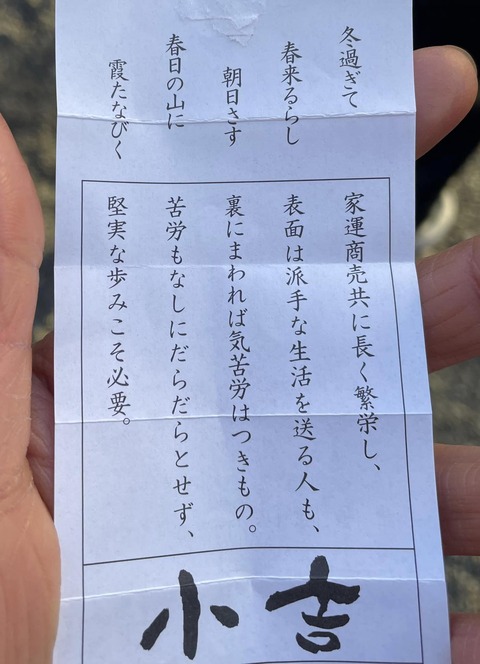 冬過ぎて
春来るらし
朝日さす
春日の山に
霞たなびく
家運商売共に長く繁栄し、
表面は派手な生活を送る人も、
裏にまわれば気苦労はつきもの。
苦労もなしにだらだらとせず、
堅実な歩みこそ必要。
小吉